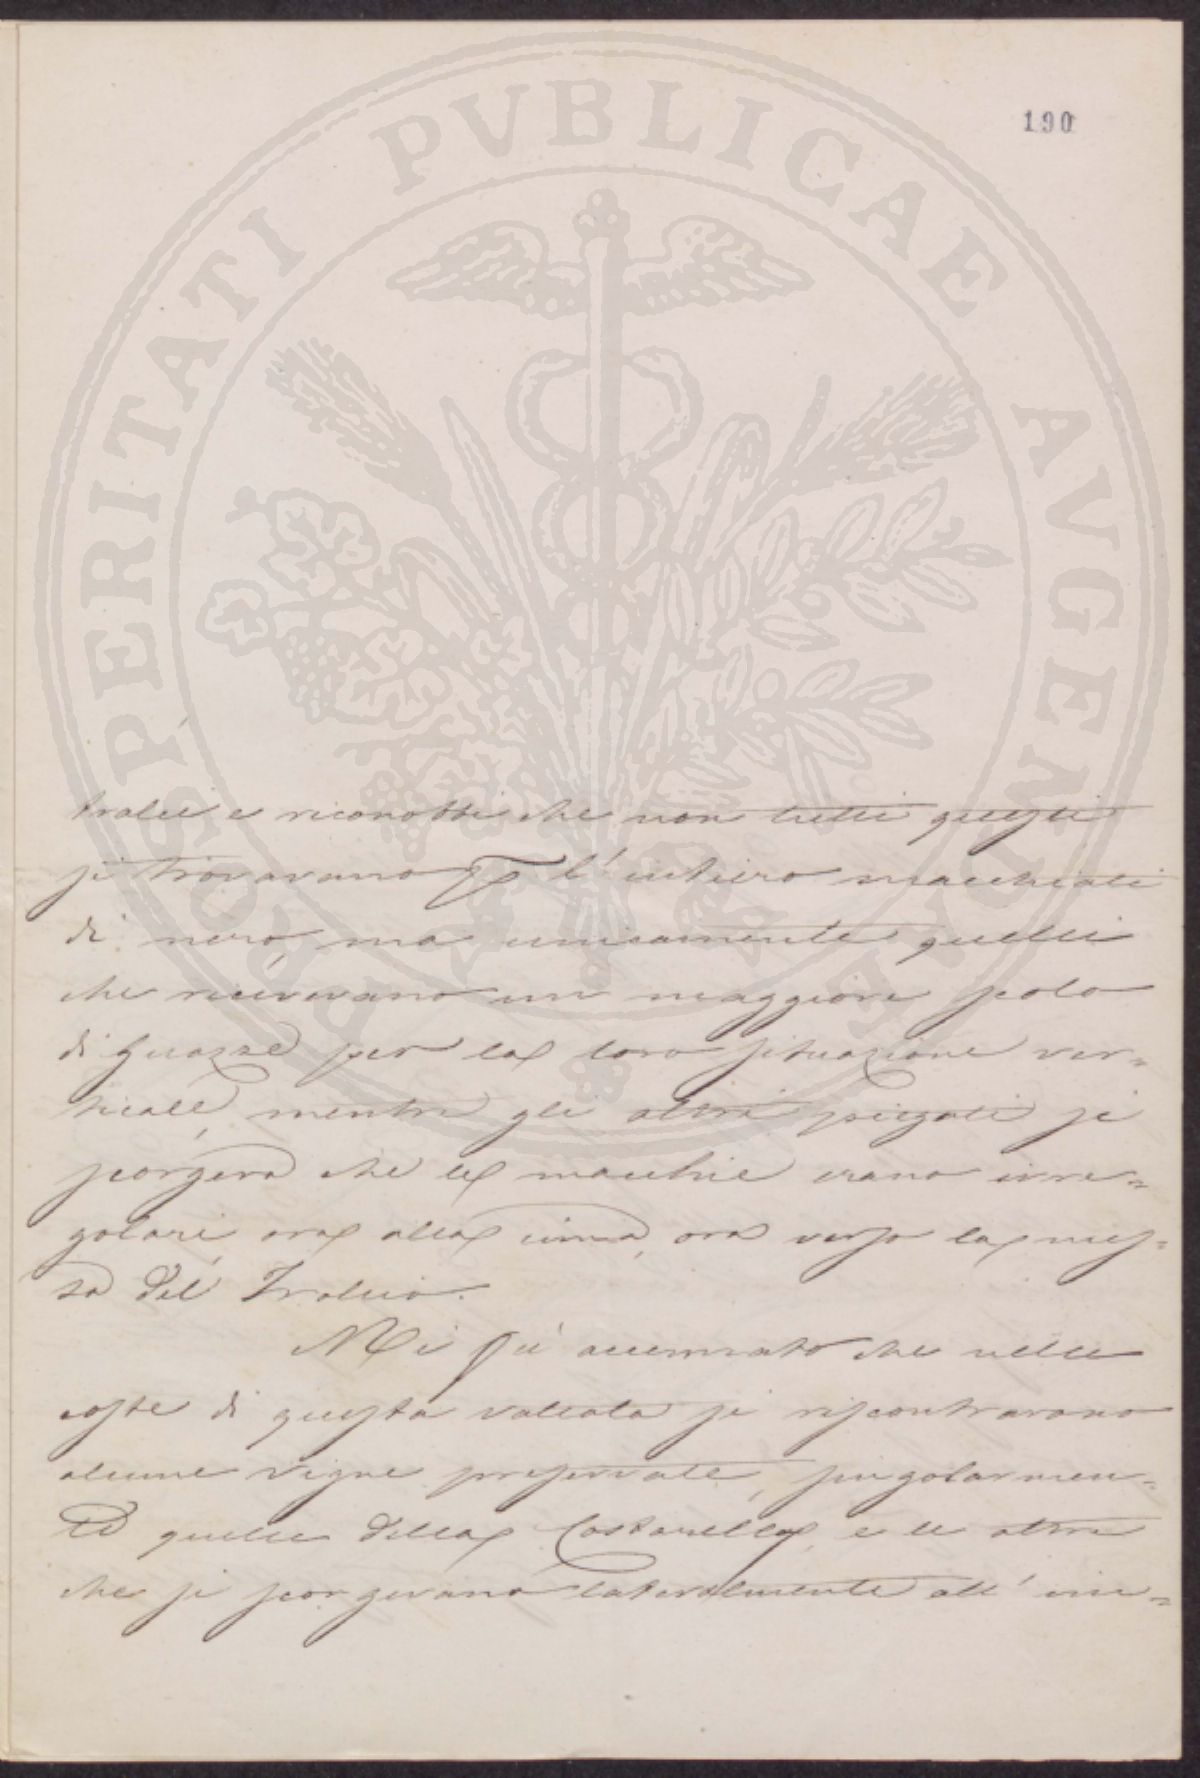 190
PROSPERITATI PVBLICAE AVGENDAE
tralci e riconobbi che non tutti questi
si trovavano p l'intiero macchiati
di nero, ma unicamente quelli
che ricevevano un maggiore
di guazze per la loro situazione ver=
ticale, mentre gli altri piegati si
scorgeva che le macchie erano irre=
golari, ora alla cima, ora verso la mes=
sa del Tralcio.
Mi fù accennato che nelle
coste di questa vallata si riscontravano
alcune vigne preservate, singolarmen=
te quelle della Costarella, e le altre
che si scorgevano lateralmente all'